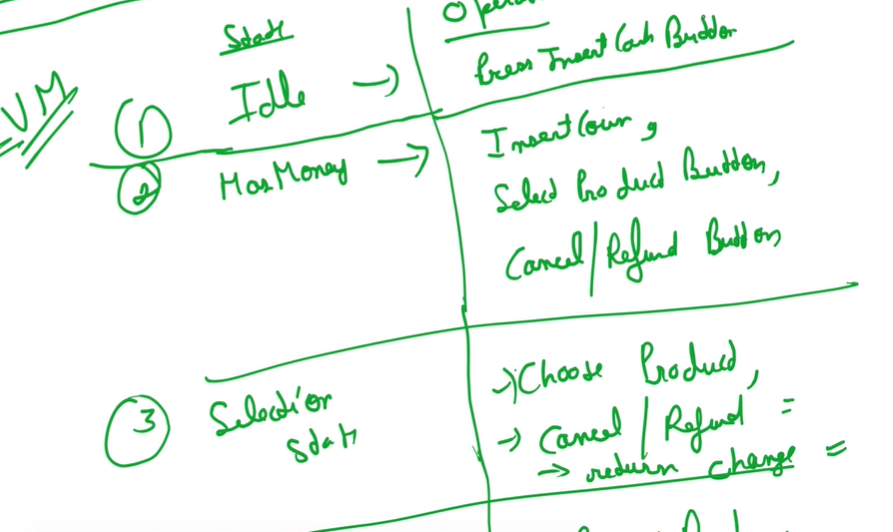 State
Press Insert Cash Button
VM
1 Idle →
2 HasMoney →
Insert Coin,
Select Product Button,
Cancel/Refund Button
3 Selection
State
→ Choose Product,
→ Cancel / Refund =
→ return change =